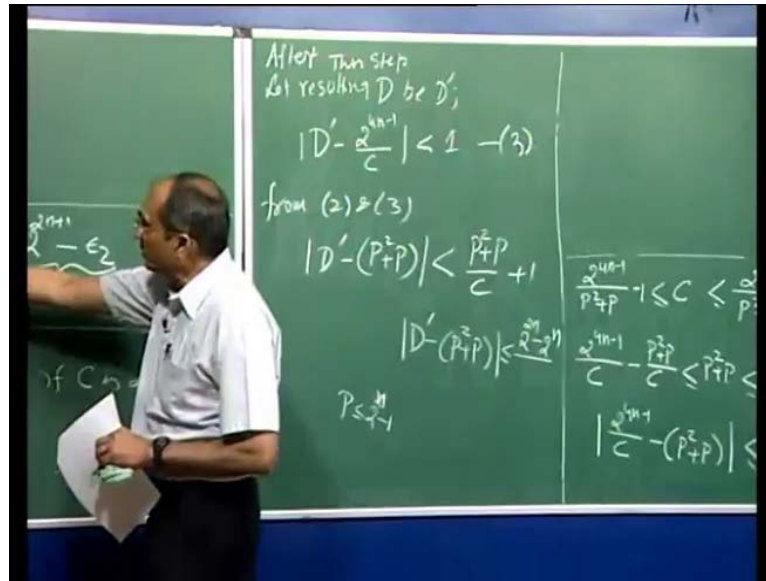 2^{2n+1} - ε_2
of C is
After this step
Let resulting D be D';
|D' - \frac{2^{4n-1}}{C}| < 1 -(3)
from (2) & (3)
|D' - (P^2+P)| < \frac{P^2+P}{C} + 1
|D' - (P^2+P)| ≤ 2^{2n} - 2^n
P ≤ 2^n - 1
\frac{2^{4n-1}}{P^2+P} - 1 ≤ C ≤
\frac{2^{4n-1}}{C} - \frac{P^2+P}{C} ≤ P^2+P ≤
|\frac{2^{4n-1}}{C} - (P^2+P)| ≤